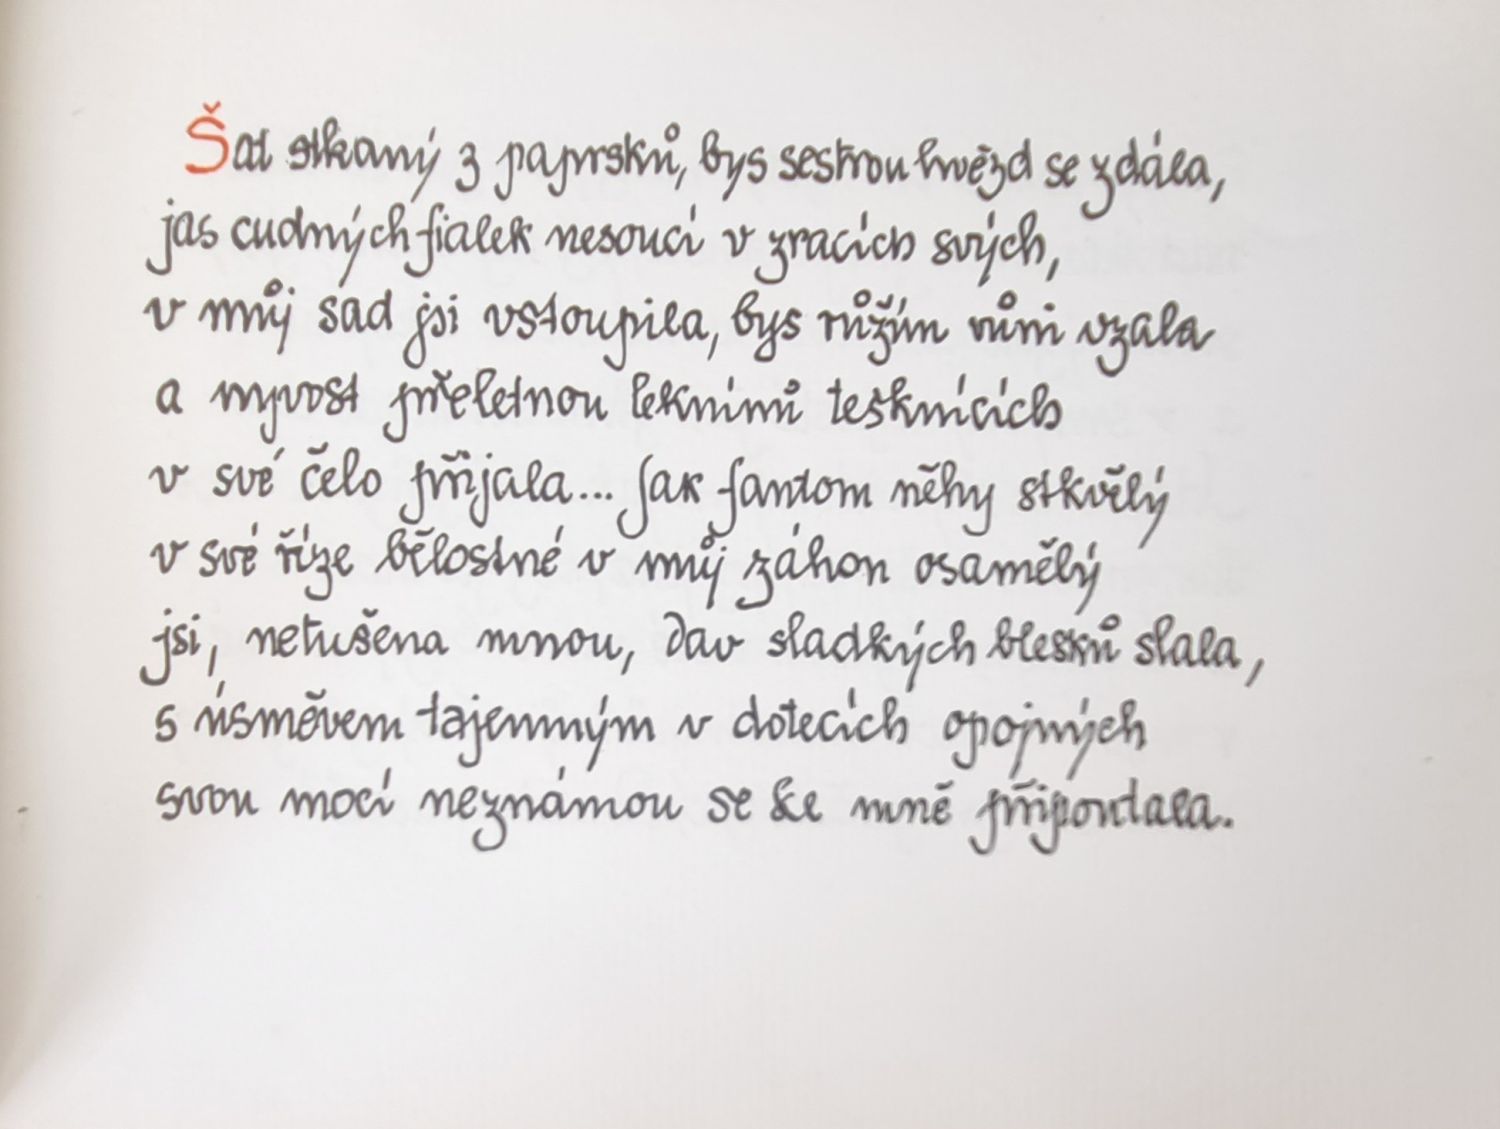 Šat stkaný z paprsků, bys sestrou hvězd se zdála,
jas cudných fialek nesoucí v zracích svých,
v můj sad jsi vstoupila, bys růžím vůni vzala
a pyvost přeletnou leknínů tesknících
v své čelo přijala... Jak fantom něhy stkvělý
v své říze bělostné v můj záhon osamělý
jsi, netušena mnou, dav sladkých blesků slala,
s úsměvem tajemným v dotecích opojných
svou mocí neznámou se ke mně připoutala.